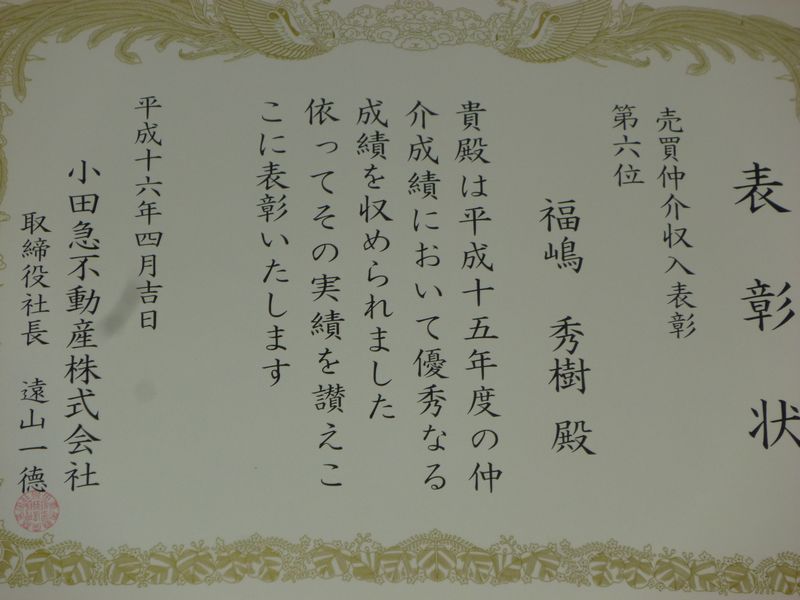 表彰状
売買仲介収入表彰
第六位
福嶋 秀樹 殿
貴殿は平成十五年度の仲
介成績において優秀なる
成績を収められました
依ってその実績を讃えこ
こに表彰いたします
平成十六年四月吉日
小田急不動産株式会社
取締役社長 遠山一德